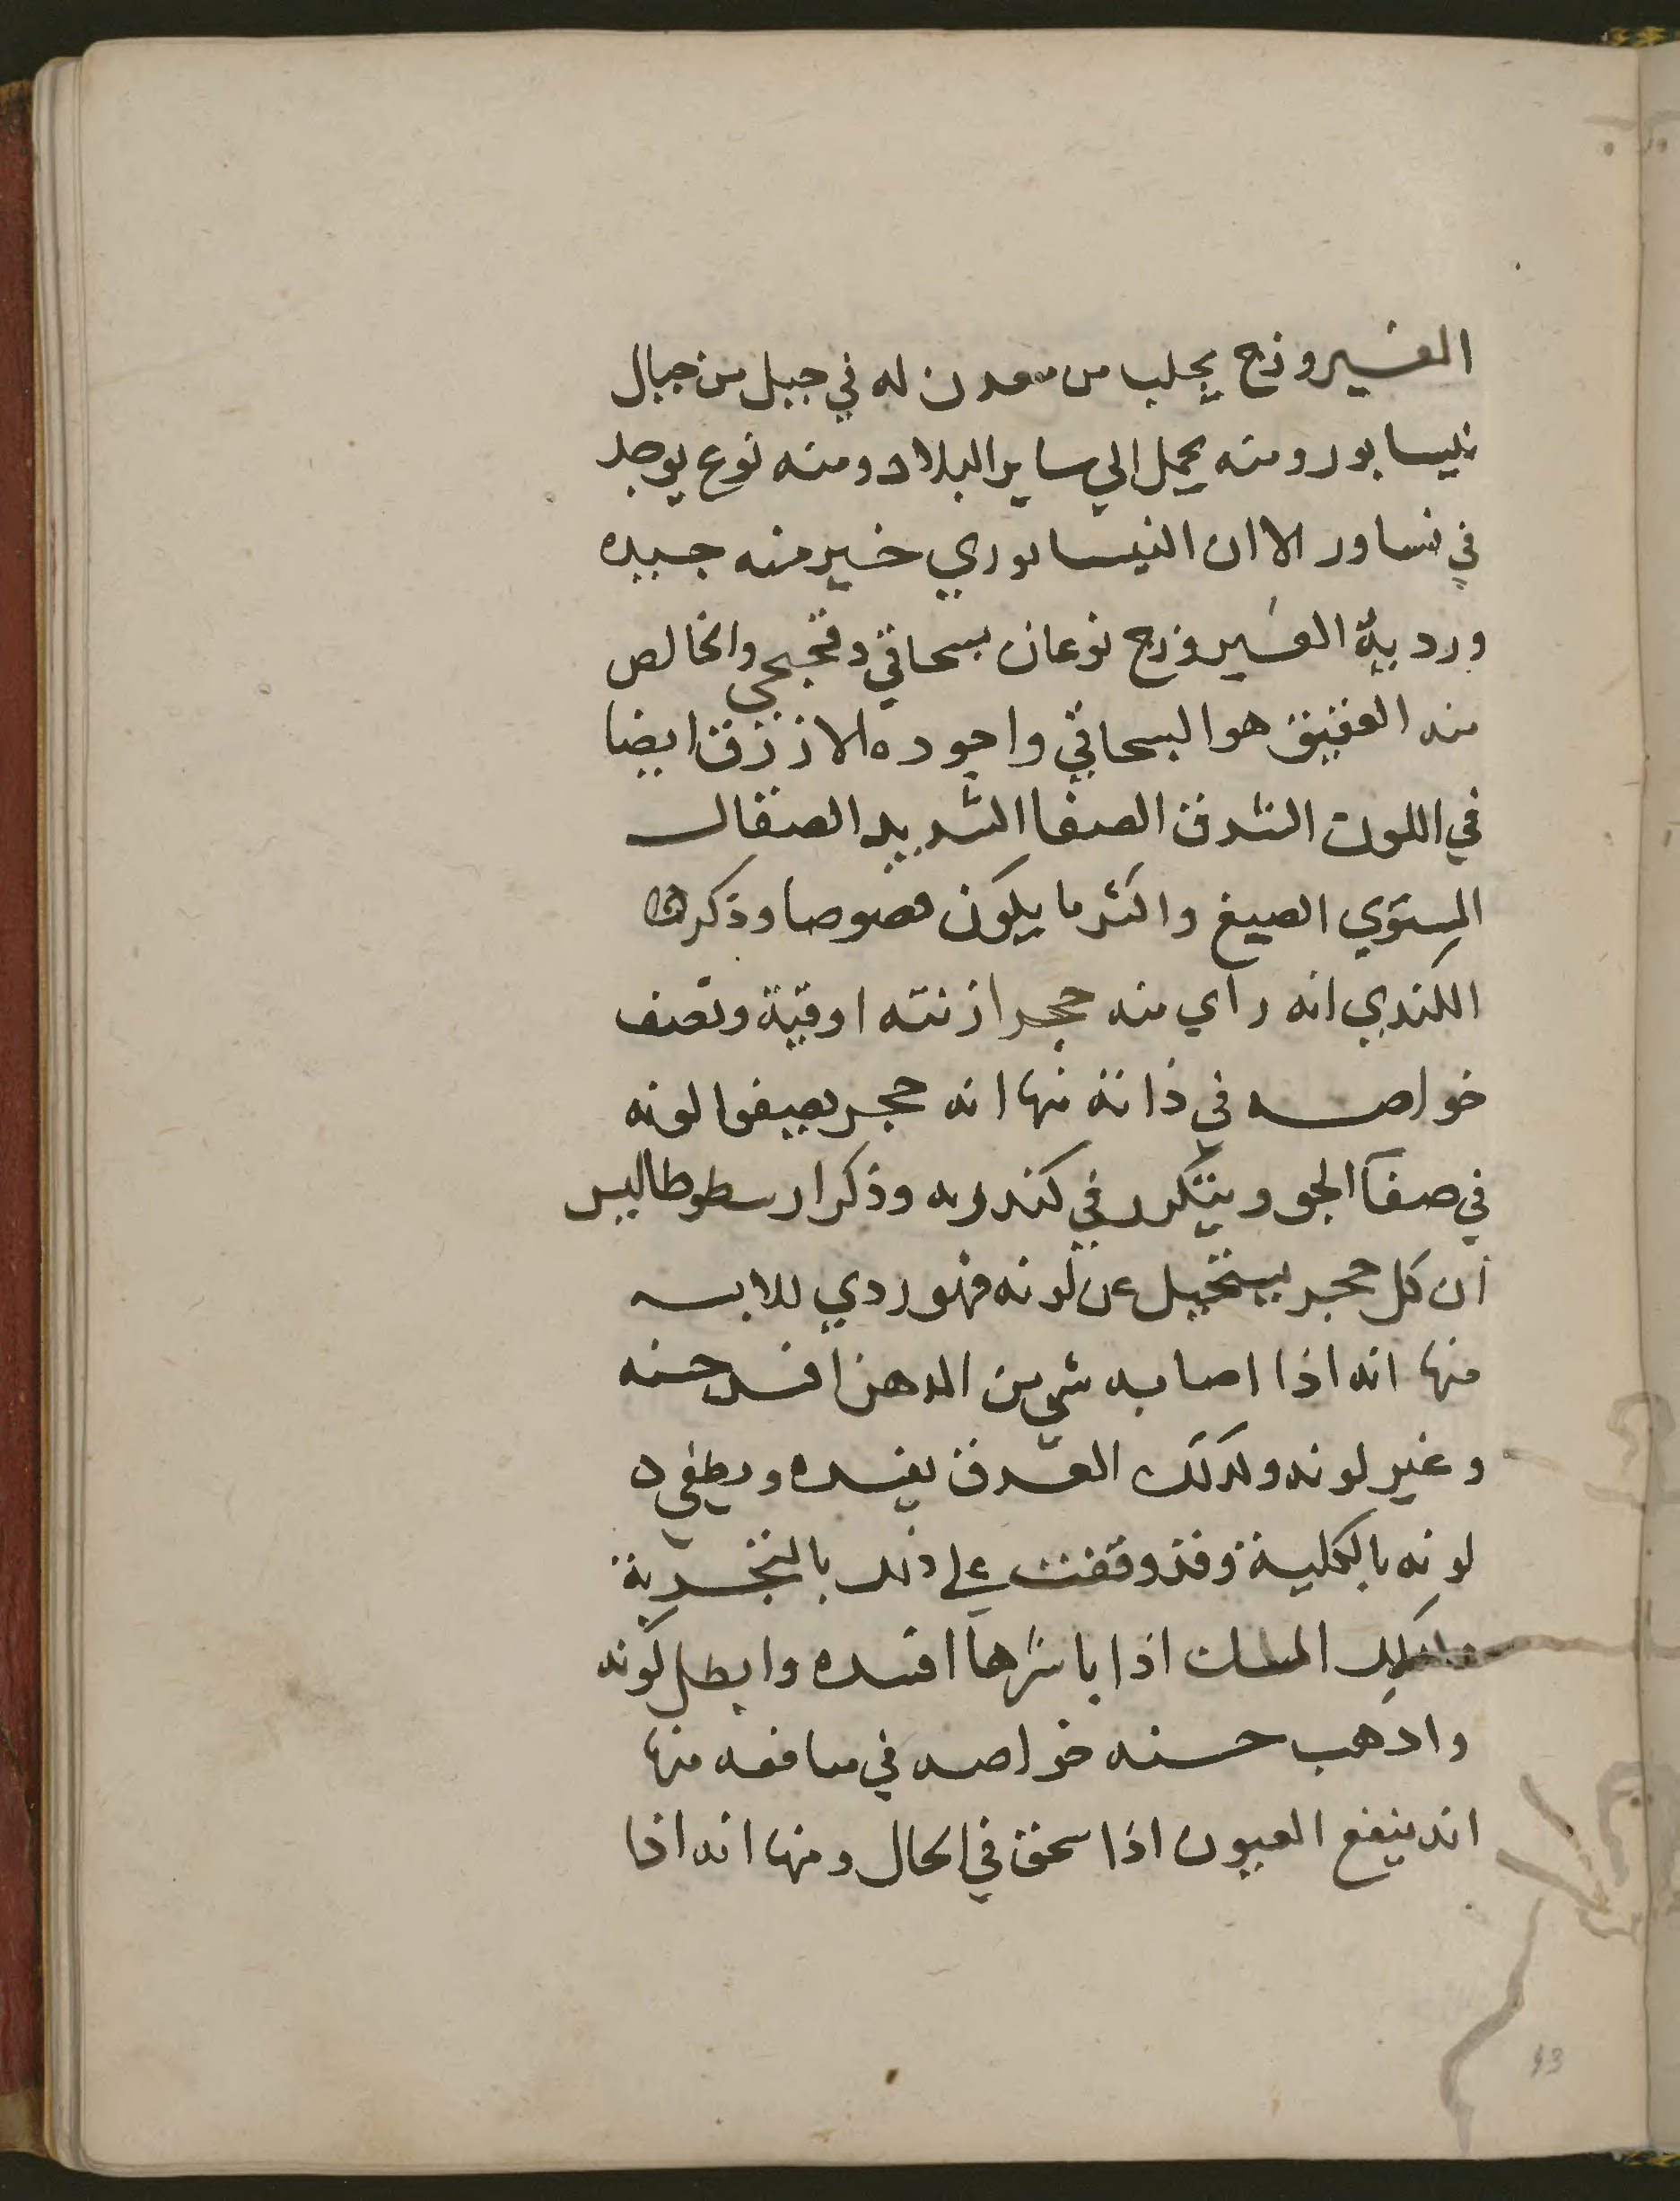 الفيروزج يجلب من معدن له في جبل من جبال
نيسابور ومنه يحمل الي ساير البلاد ومنه نوع يوجد
في نساور الا ان النيسابوري خير منه جيده
ورديه الفيروزج نوعان بسحاقي وفتجحي والخالص
منه العقيق هو البسحاقي واجوده الازرق ايضا
في اللون الشرق الصفا الشديد الصقال
المستوي الصبغ واكثر ما يكون فصوصا وذكر
الكندي انه راي منه حجرا زنته اوقية ونصف
خواصه في ذاته منها انه حجر يصفوا لونه
في صفا الجو ويتكدر في كدره وذكر ارسطوطاليس
ان كل حجر يستحيل عن لونه فهو ردي للابسه
منها انه اذا اصابه شي من الدهن افسد حسنه
وغير لونه وكذلك العرق يفسده ويطفي
لونه بالكلية وقد وقفت علي ذلك بالتجربة
وكذلك المسك اذا باشرها افسده وابطل لونه
واذهب حسنه خواصه في منافعه منها
انه ينفع العيون اذا سحق في الكحال ومنها انه اذا
43